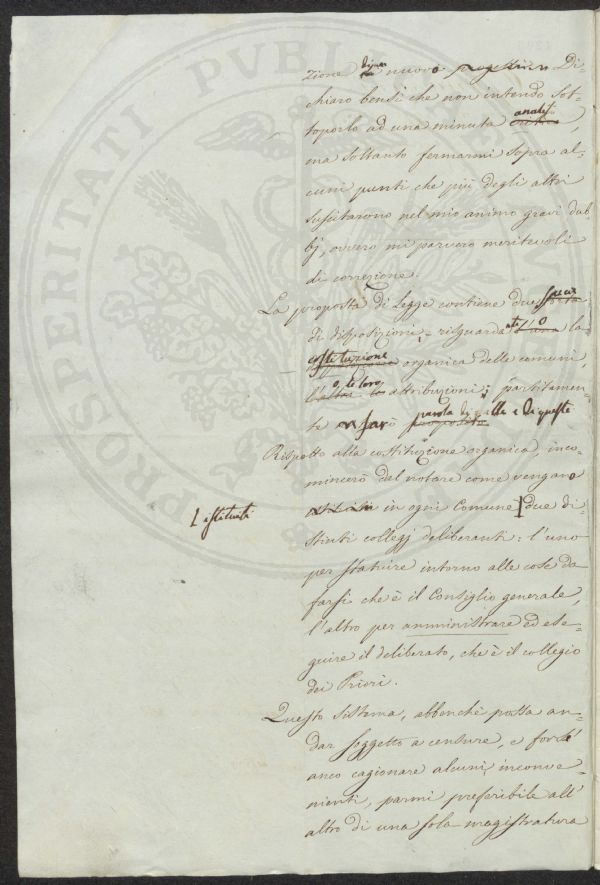 zione di un nuovo progetto. Di=
chiaro bensì che non intendo sot=
toporlo ad una minuta analisi,
ma soltanto fermarmi sopra al=
cuni punti che più degli altri
suscitarono nel mio animo gravi dub=
bj, ovvero mi parvero meritevoli
di correzione.
La proposta di Legge contiene due specie
di disposizioni, risguardanti o la
costituzione organica delle comuni,
o le loro attribuzioni; partitamen=
te farò parola di quelle e di queste
Rispetto alla costituzione organica, inco=
mincerò del notare come vengano
istituiti
in ogni Comune due di=
stinti collegj deliberanti: l'uno
per statuire intorno alle cose da
farsi che è il Consiglio generale,
l'altro per amministrare ed ese=
guire il deliberato, che è il collegio
dei Priori.
Questo sistema, abbenchè possa an=
dar soggetto a censure, e forse
anco cagionare alcuni inconve=
nienti, parmi preferibile all'
altro di una sola magistratura
PROSPERITATI PUBLI